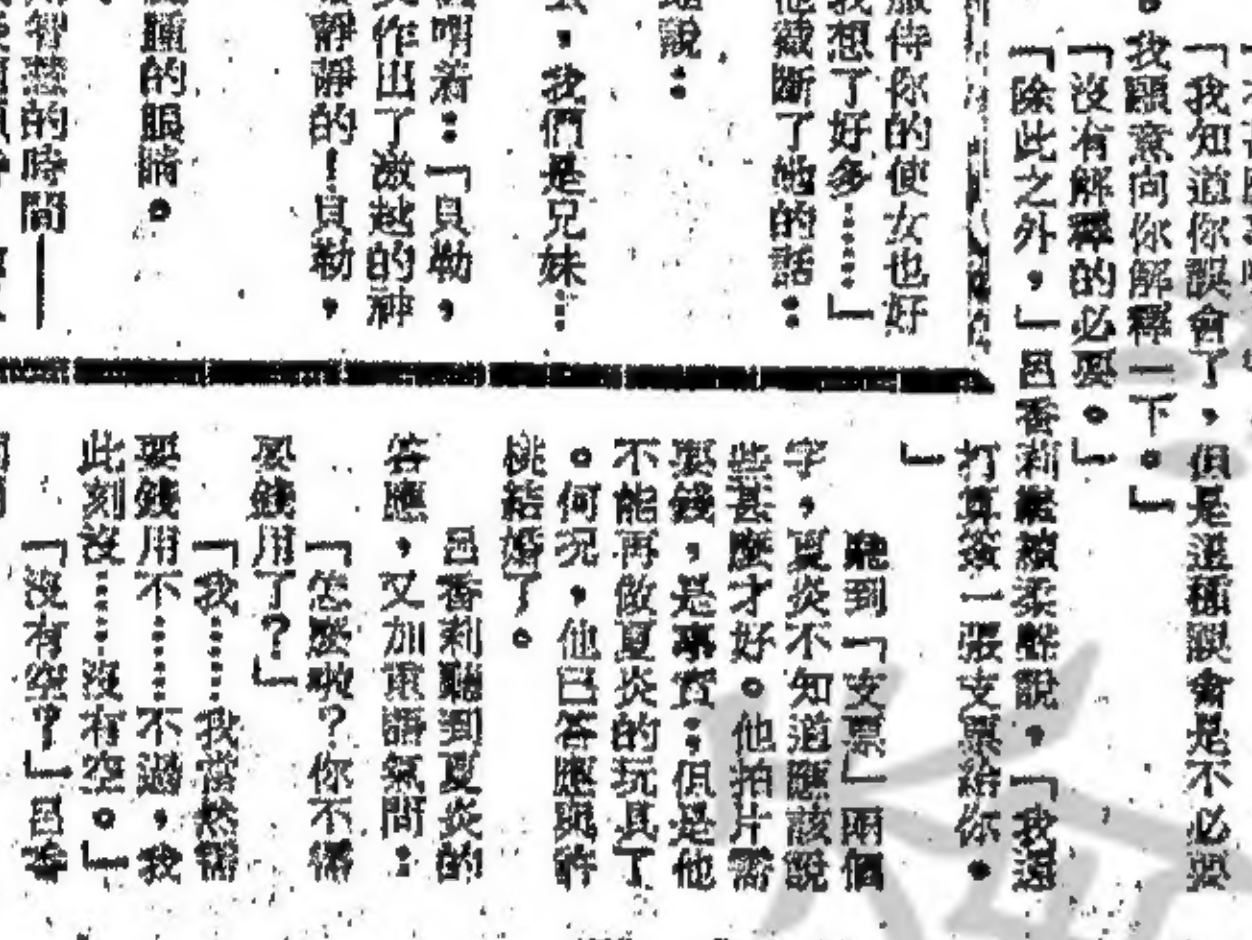 「我知道你誤會了，但是這種誤會是不必要
。我願意向你解釋一下。」
「沒有解釋的必要。」
「除此之外，」呂香莉繼續柔聲說，「我還
打算簽一張支票給你。
」
聽到「支票」兩個
字，夏炎不知道應該說
些甚麼才好。他拍片需
要錢，是事實；但是他
不能再做夏炎的玩具了
。何況，他已答應與許
桃結婚了。
呂香莉聽到夏炎的
答應，又加重語氣問：
「怎麼啦？你不需
要錢用了？」
「我……我當然需
要錢用不……不過，我
此刻沒……沒有空。」
「沒有空？」呂香
服侍你的使女也好
我想了好多……」
他截斷了她的話：
說：
，我們是兄妹…
喟着：「貝勒，
作出了激越的神
靜靜的！貝勒，
腫的眼睛。
智慧的時間——